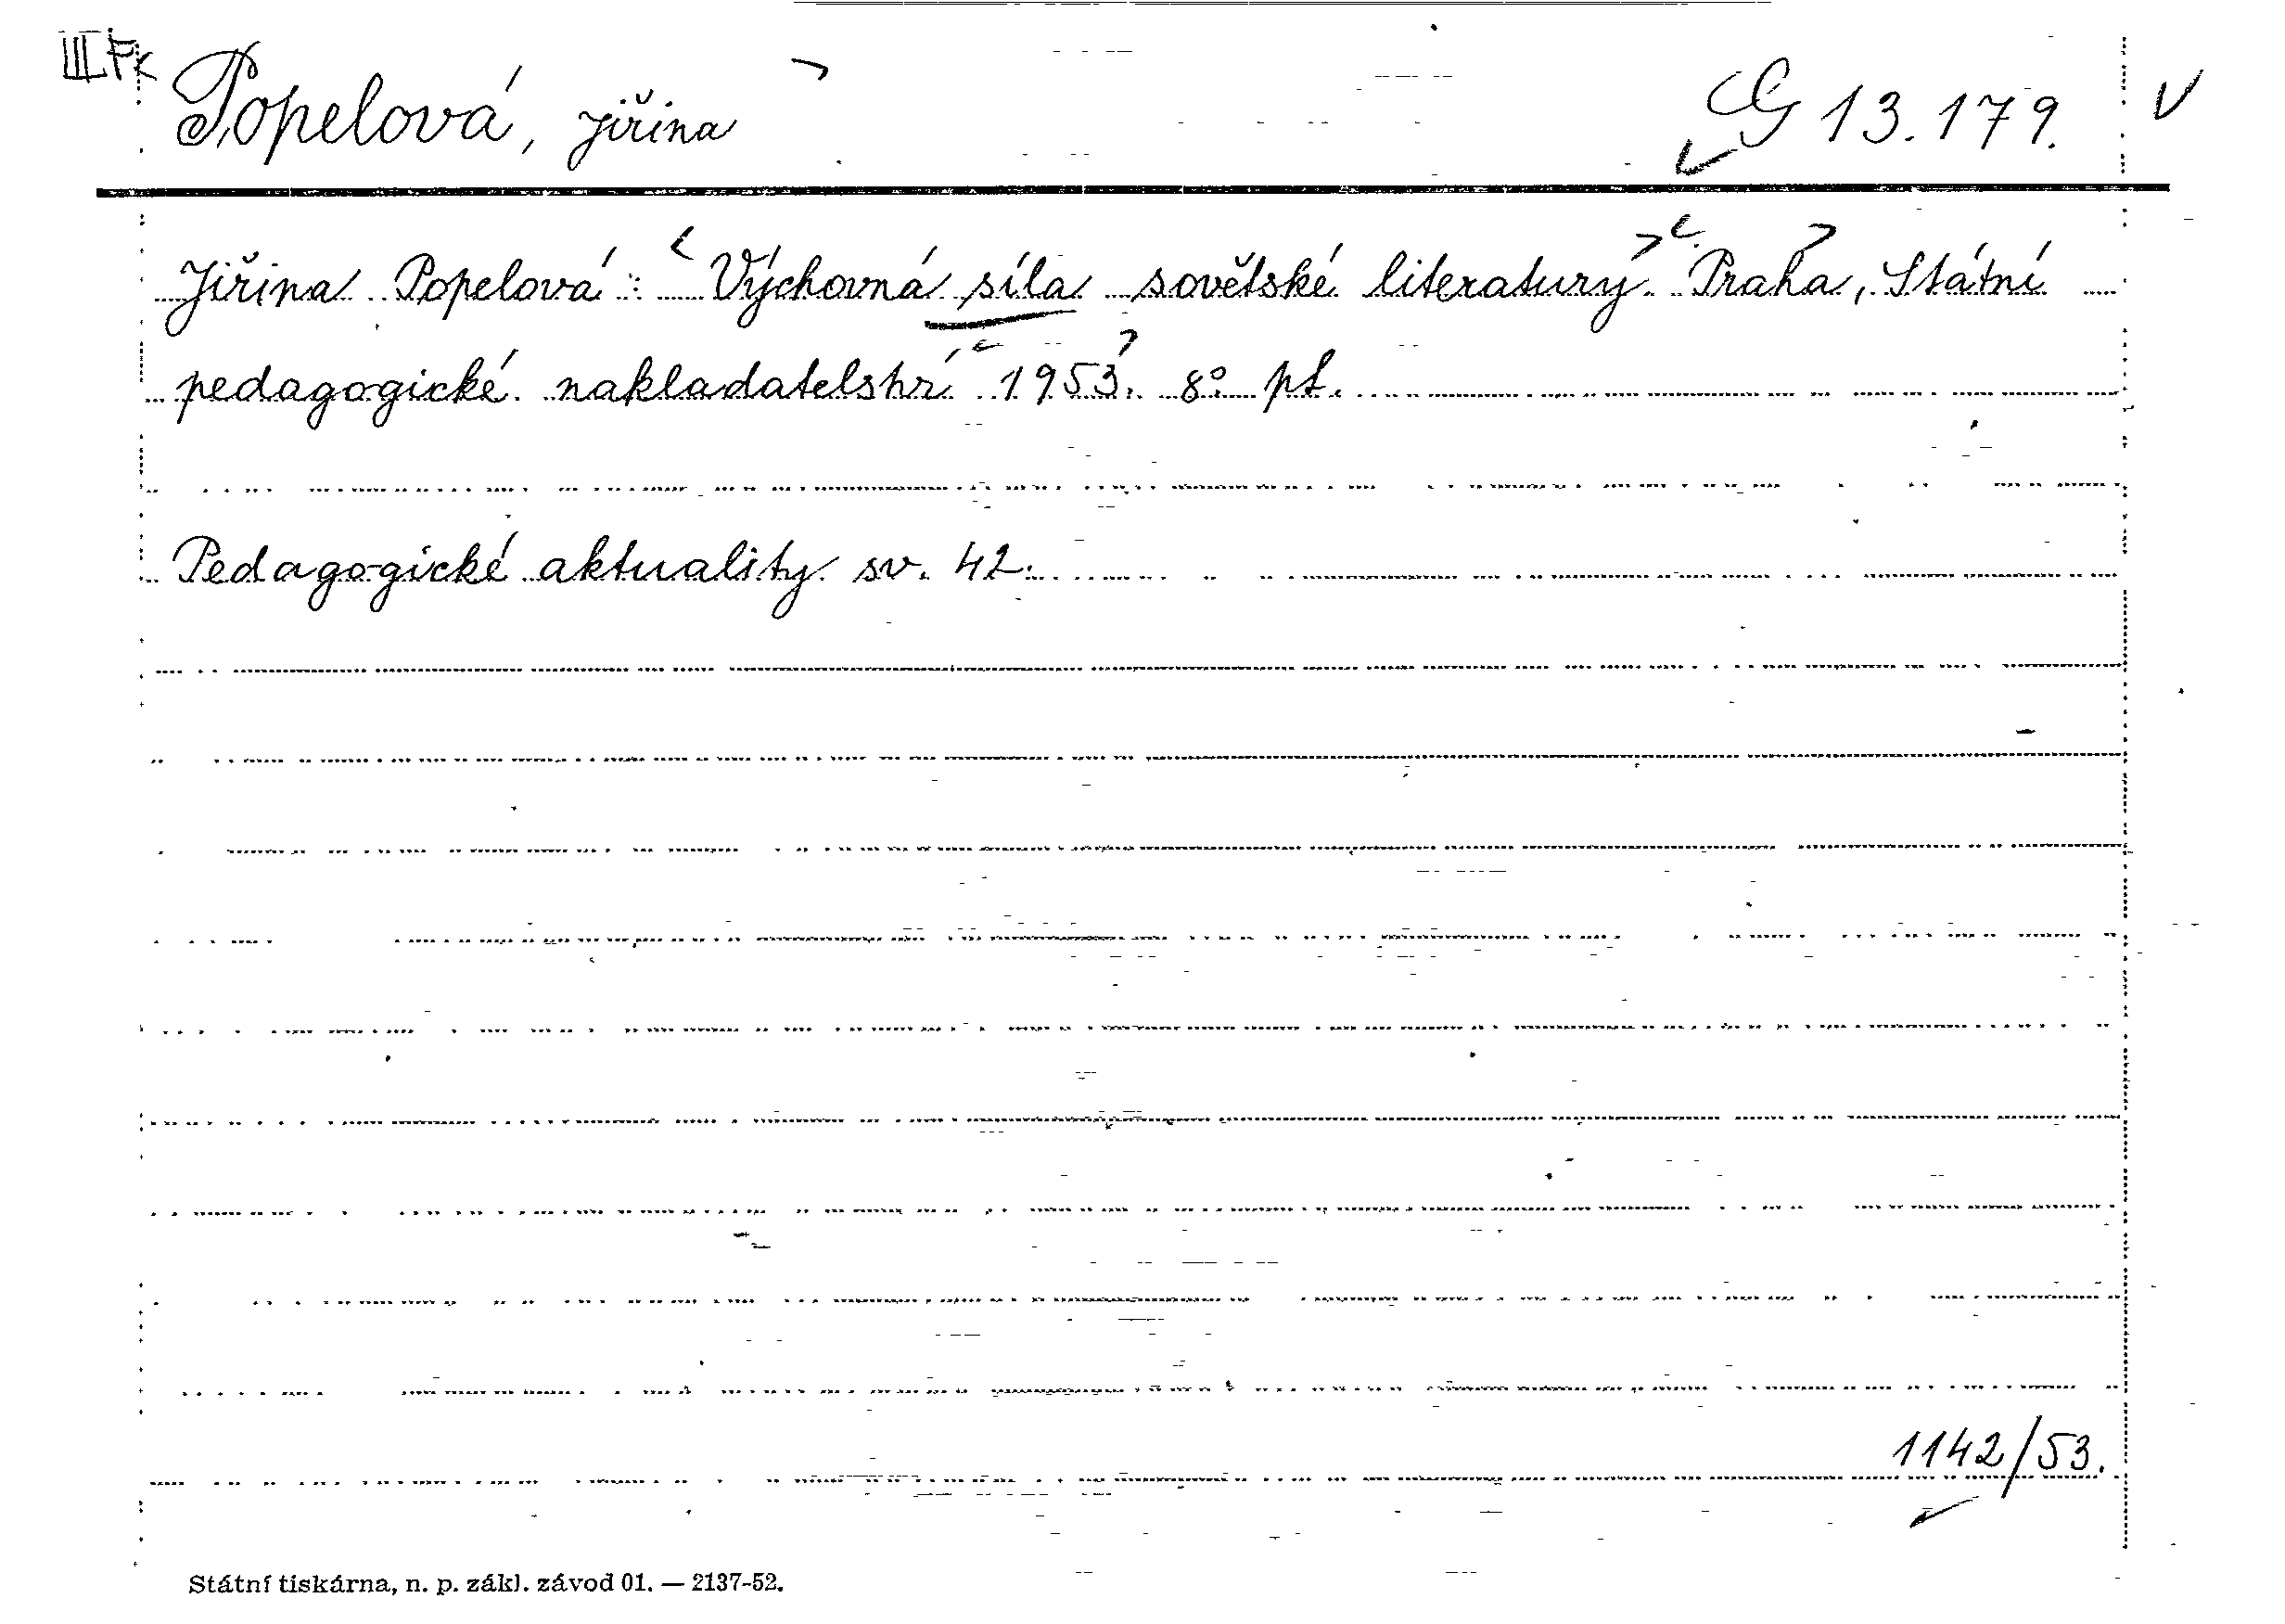 III Fk
Popelová, Jiřina G 13.179. V
Jiřina Popelová: Výchovná síla sovětské literatury. Praha, Státní
pedagogické nakladatelství 1953. 8° pl.
Pedagogické aktuality sv. 42.
1142/53.
Státní tiskárna, n. p. zákl. závod 01. — 2137-52.